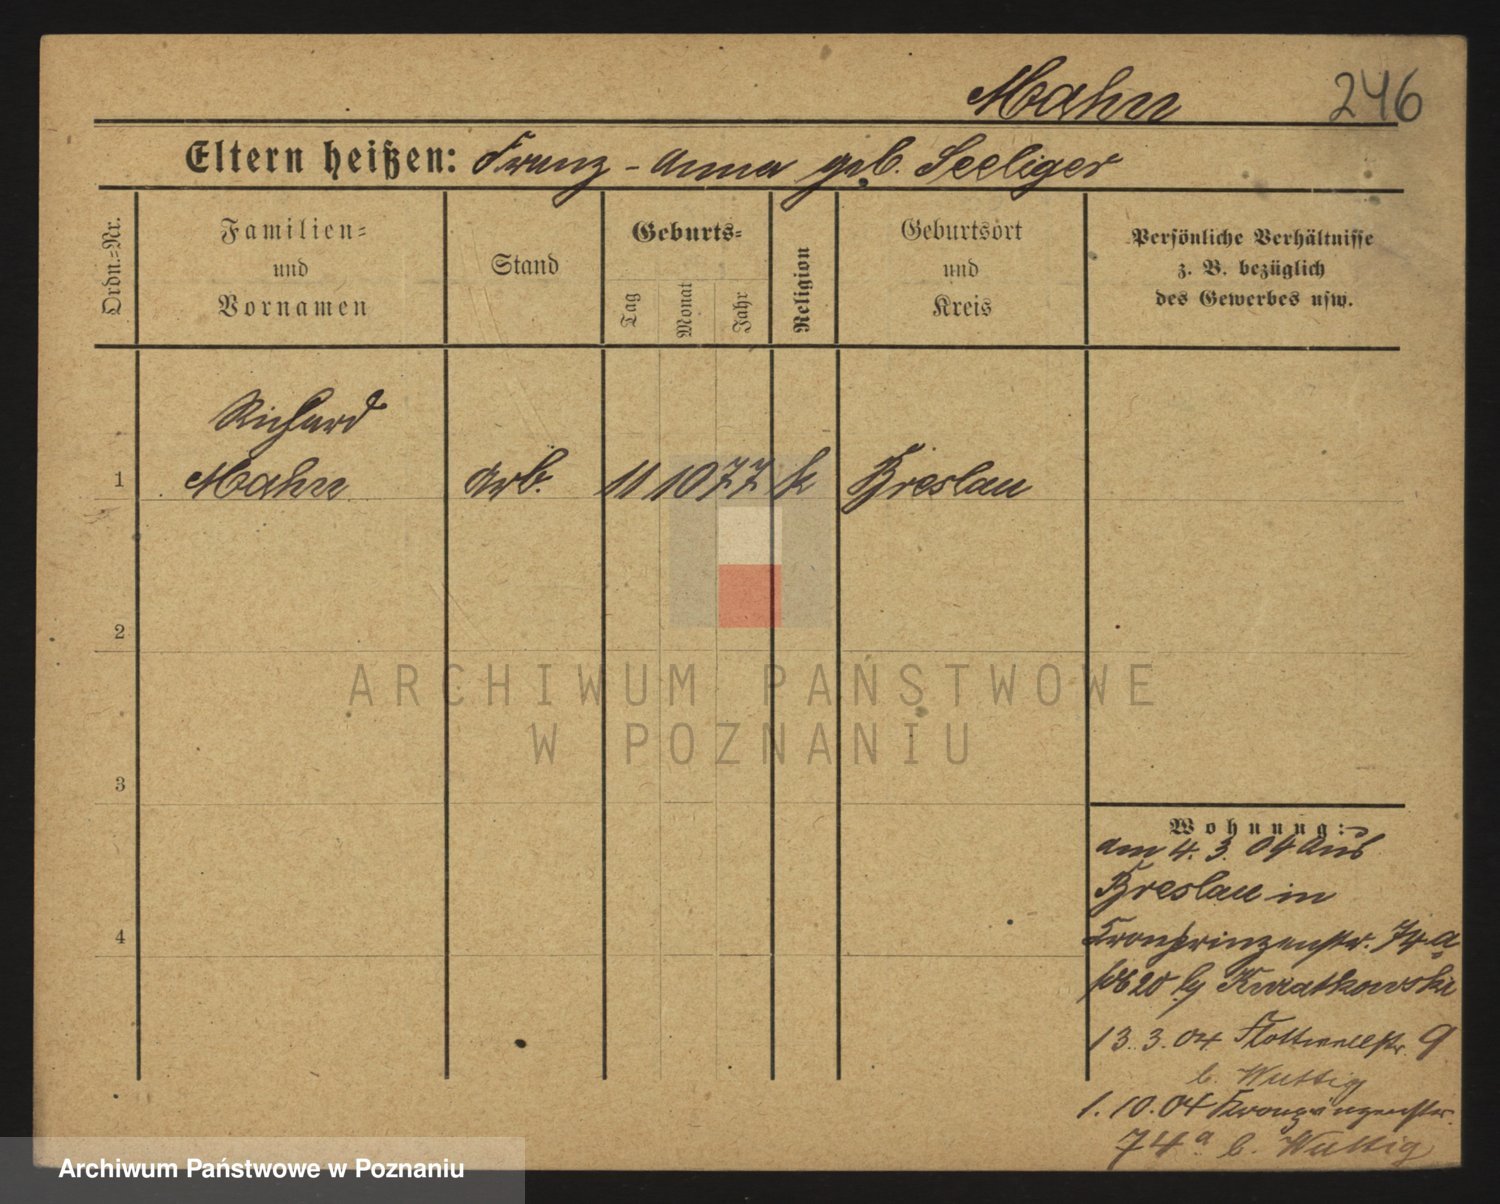 Mahn 246
Eltern heißen: Franz - Anna geb. Seeliger
Ordn.-Nr.
Familien-
und
Vornamen
Stand
Geburts-
Tag
Monat
Jahr
Religion
Geburtsort
und
Kreis
Persönliche Verhältnisse
z. B. bezüglich
des Gewerbes usw.
Richard
1 Mahn Arb. 11 10 77 k Breslau
2
3
4
Wohnung:
am 4. 3. 04 aus
Breslau in
Kronprinzenstr. 74 a
20 Kwiatkowski
13. 3. 04 Flottwellstr. 9
b. Wuttig
1. 10. 04 Kronprinzenstr.
74 a b. Wuttig
ARCHIWUM PAŃSTWOWE
W POZNANIU
Archiwum Państwowe w Poznaniu